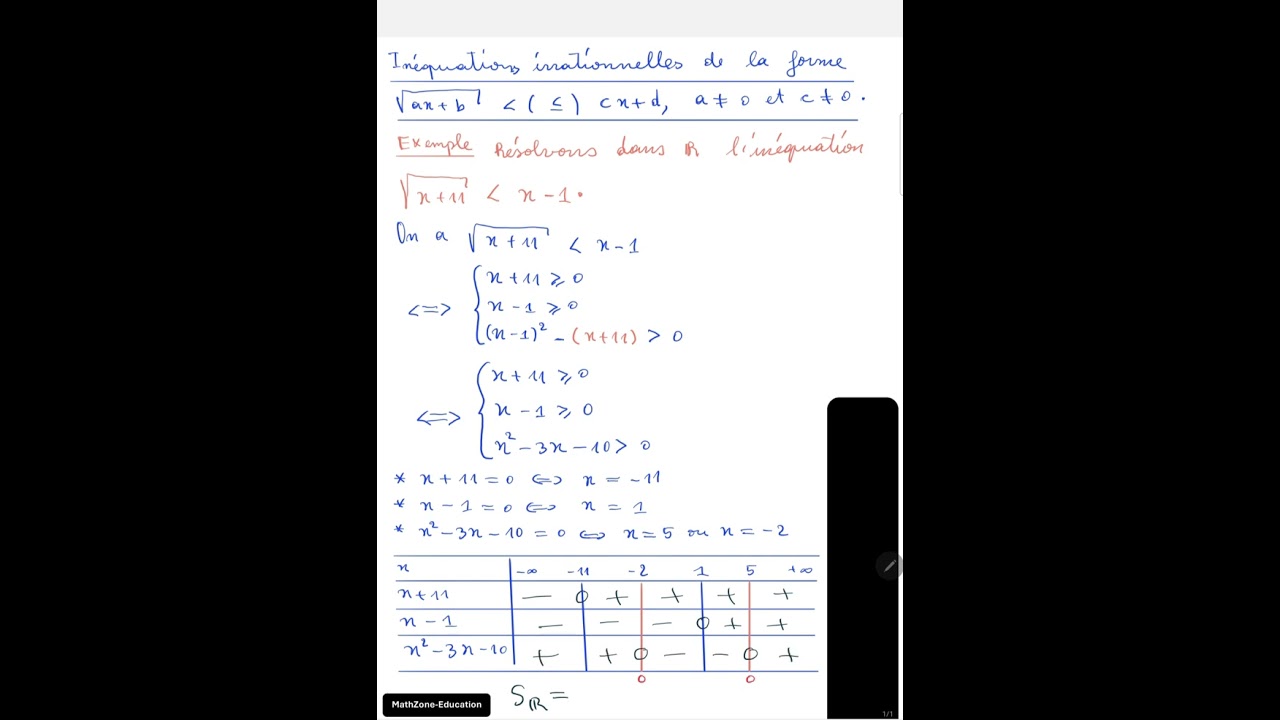 Inéquations irrationnelles de la forme
√(ax+b) < (≤) cx+d, a ≠ 0 et c ≠ 0.
Exemple Résolvons dans ℝ l'inéquation
√(x+11) < x-1.
On a √(x+11) < x-1
<=> { x+11 ⩾ 0
x-1 ⩾ 0
(x-1)² - (x+11) > 0
<=> { x+11 ⩾ 0
x-1 ⩾ 0
x²-3x-10 > 0
* x+11=0 <=> x = -11
* x-1=0 <=> x = 1
* x²-3x-10=0 <=> x=5 ou x=-2
x -∞ -11 -2 1 5 +∞
x+11 - 0 + + + +
x-1 - - - 0 + +
x²-3x-10 + + 0 - - 0 +
0 0
Sℝ =
MathZone-Education
1/1